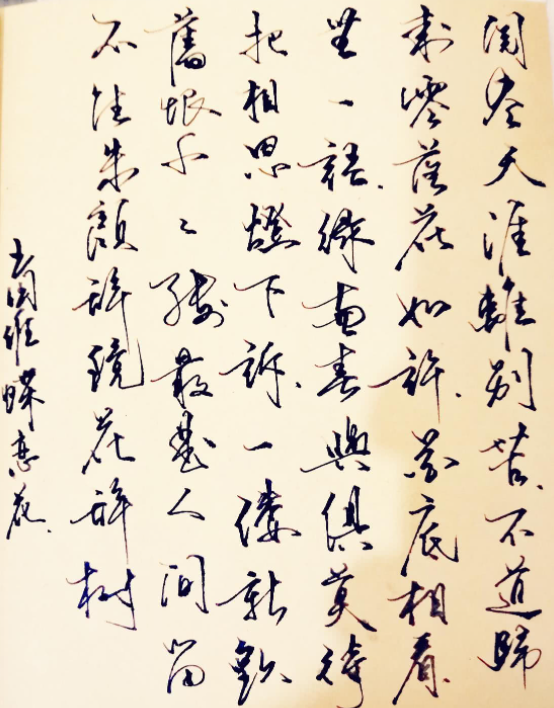 阅尽天涯離别苦.不道歸
来零落花如許.花底相看.
無一語.綠窗春與俱莫待
把相思燈下訴.一縷新歡.
舊恨千々縷最是人间留
不住朱顔辞鏡花辞樹
王国维蝶恋花.